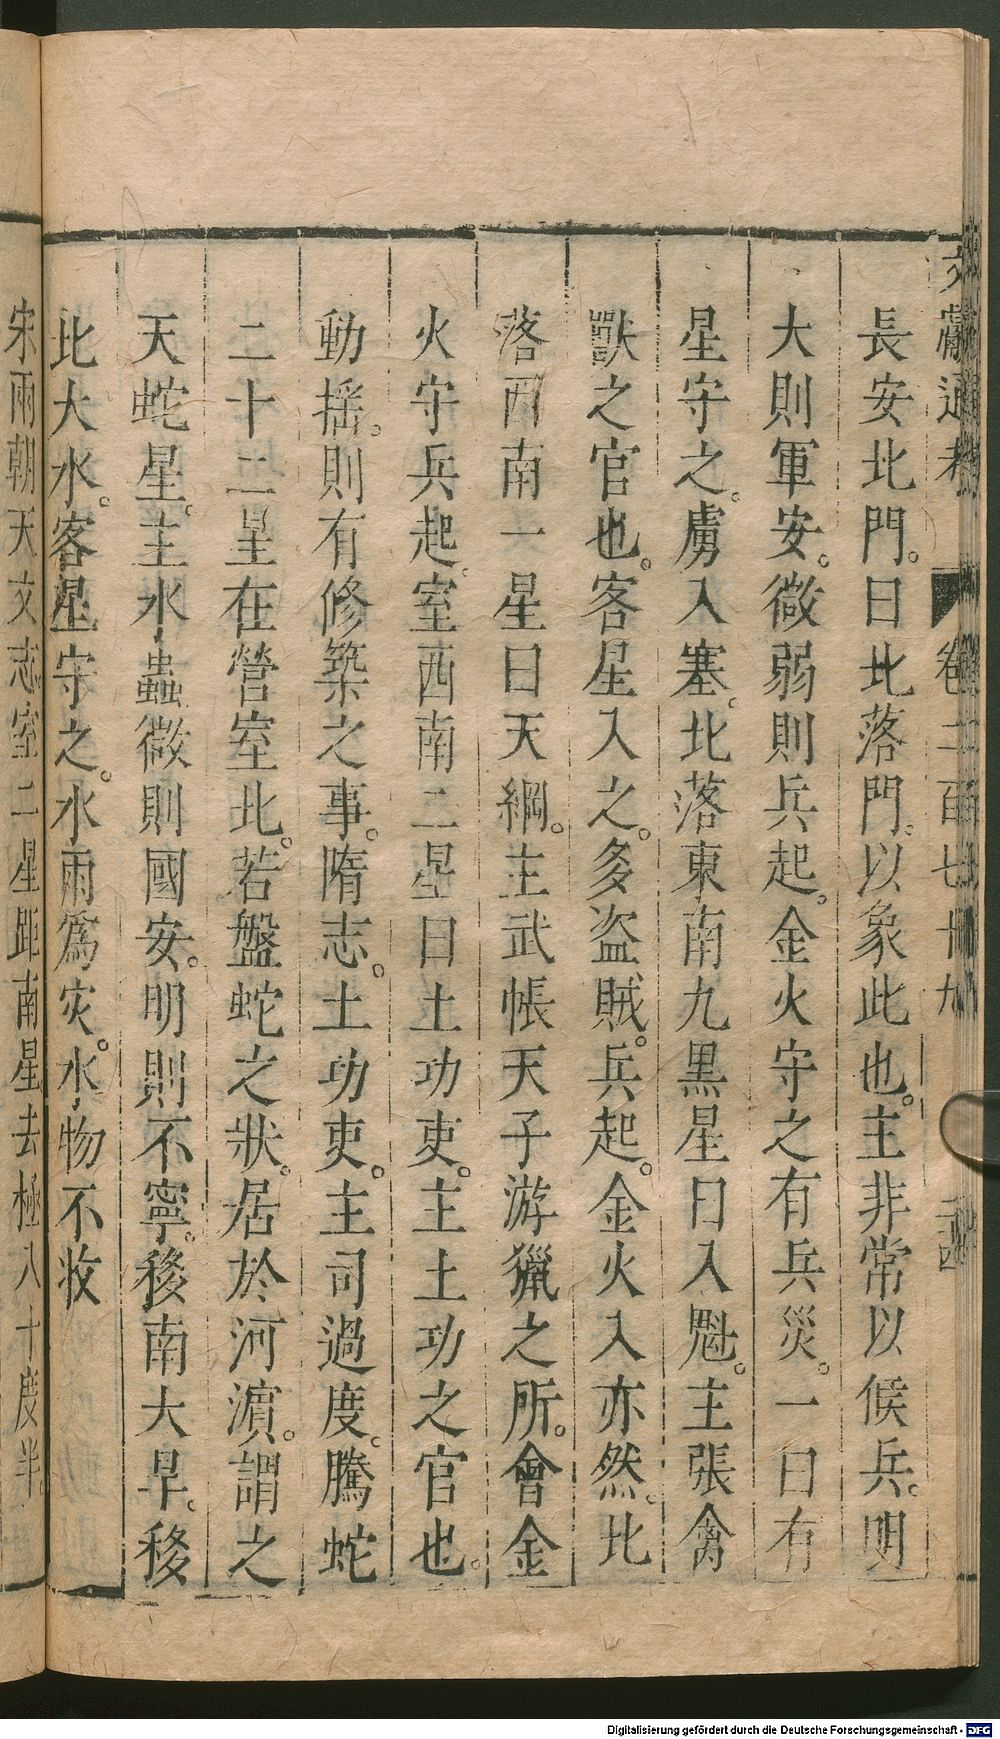 文獻通考 卷二百七十九 二十四
長安北門。曰北落門。以象此也。主非常以候兵。明
大則軍安。微弱則兵起。金火守之有兵災。一曰有
星守之。虜入塞。北落東南九黑星曰入魁。主張禽
獸之官也。客星入之。多盜賊。兵起。金火入亦然。北
落西南一星曰天綱。主武帳天子游獵之所。會金
火守兵起。室西南二星曰土功吏。主土功之官也。
動搖。則有修築之事。隋志。土功吏。主司過度。騰蛇
二十二星在營室北。若盤蛇之狀。居於河濵。謂之
天蛇星。主水蟲微則國安。明則不寧。移南大旱。移
北大水。客星守之。水雨爲灾。水物不收
宋兩朝天文志室二星距南星去極八十度半。
Digitalisierung gefördert durch die Deutsche Forschungsgemeinschaft - DFG